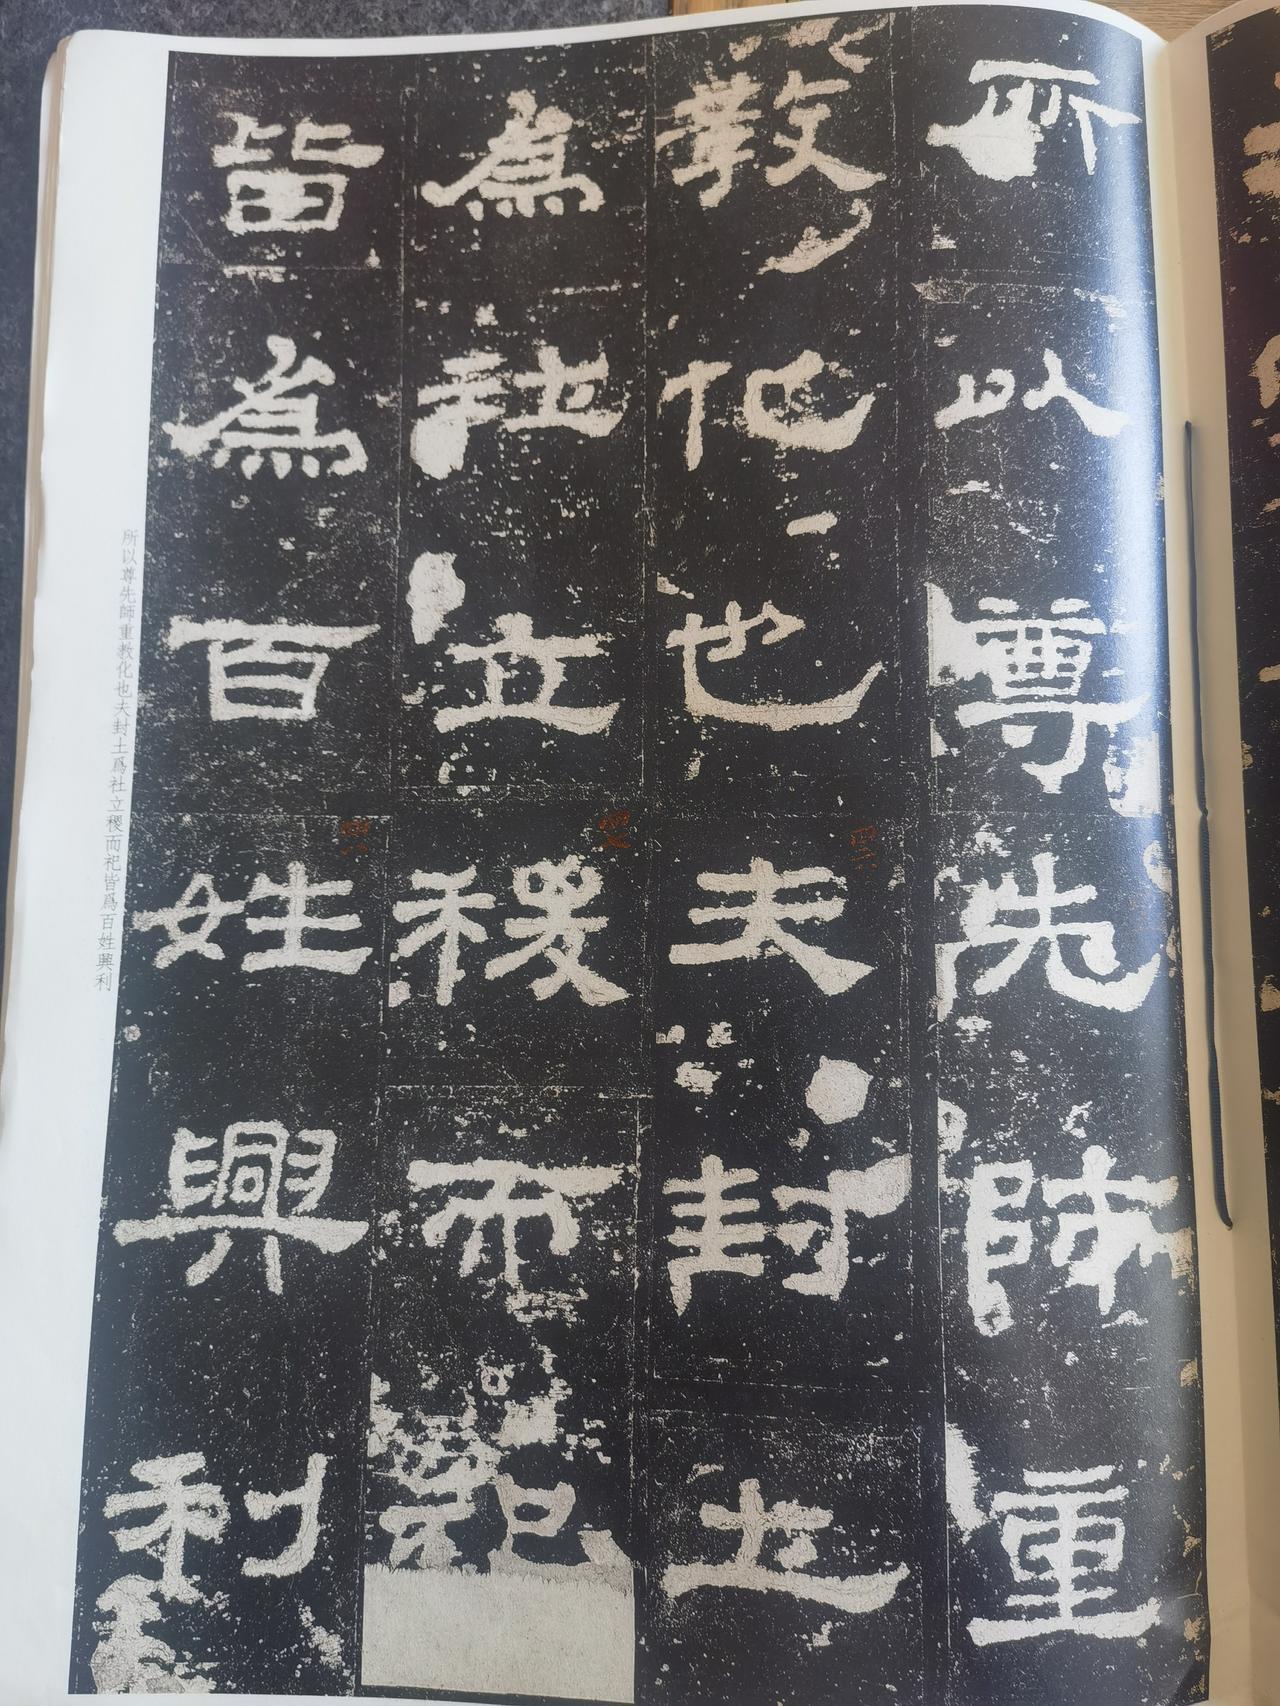 所以尊先師重
教化也夫封土
為社立稷而祀
皆為百姓興利
所以尊先師重教化也夫封土爲社立稷而祀皆爲百姓興利